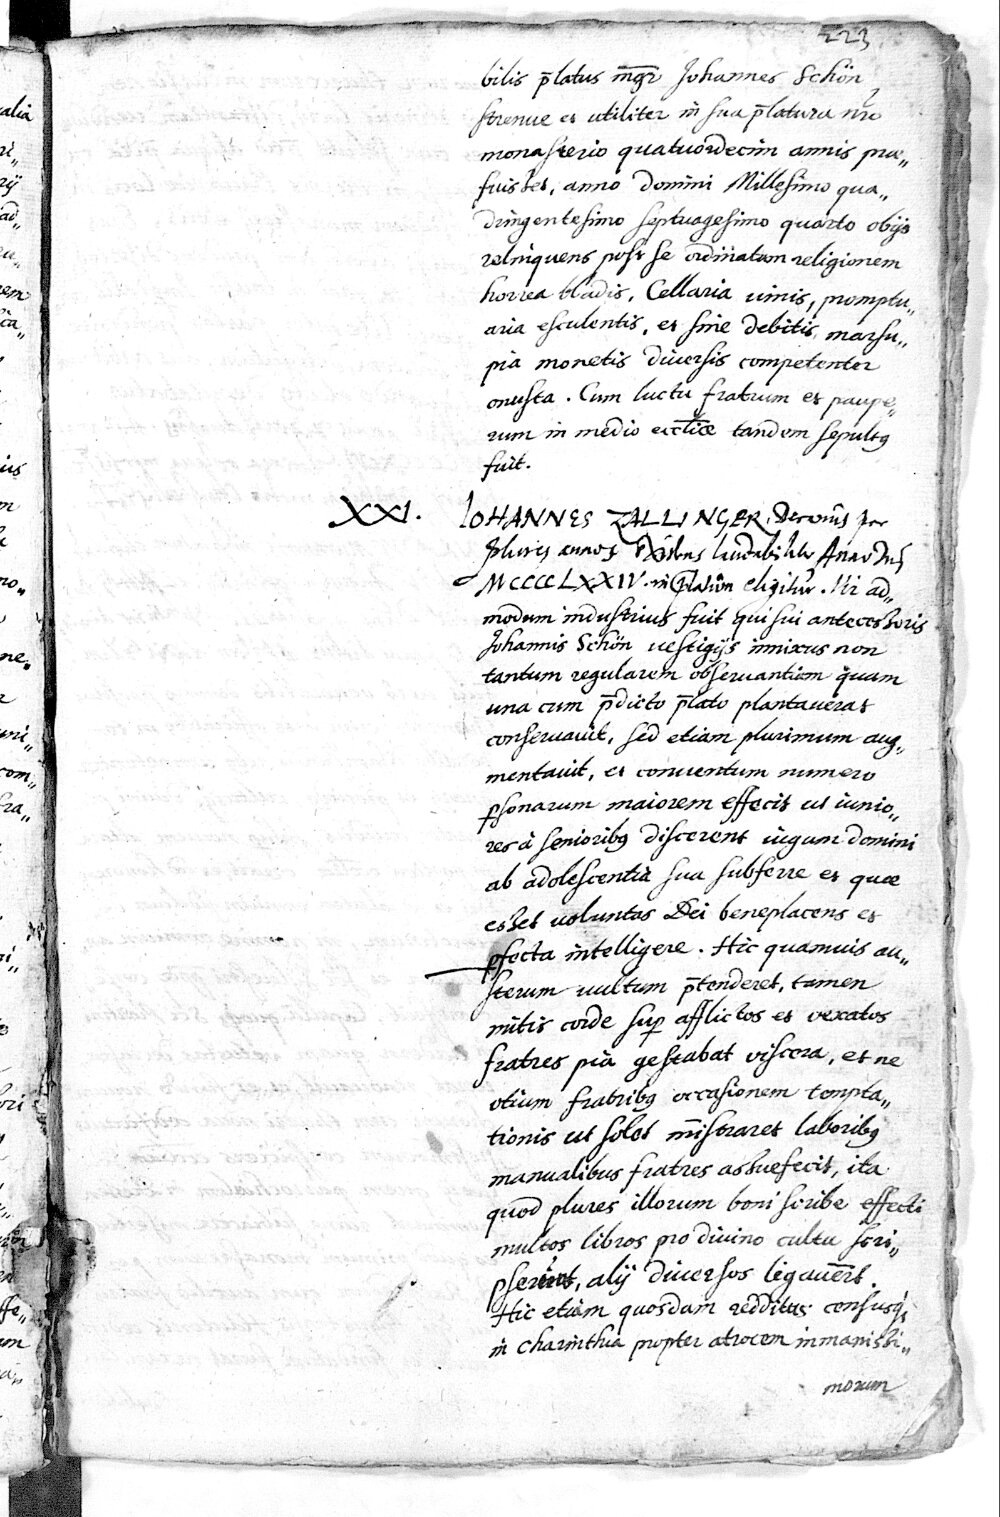 223
bilis p̄latus mgr̄ Johannes Schön
strenue et utiliter in sua p̄latura nr̄o
monasterio quatuordecim annis præ„
fuisset, anno domini Millesimo qua„
dringentesimo septuagesimo quarto obijt
relinquens post se ordinatam religionem
horrea bladis, Cellaria vinis, promptu„
aria esculentis, et sine debitis, marsu„
pia monetis diversis competenter
onusta. Cum luctu fratrum et paupe„
rum in medio eccl̄iæ tandem sepultꝯ
fuit.
XXI. IOHANNES ZALLINGER, Decanus per
plures annos existens laudabiliter Anno Dn̄i
MCCCCLXXIV. in p̄latum eligitur. Hi ad„
modum industrius fuit qui sui antecessoris
Johannis Schön vestigijs innixus non
tantum regularem observantiam quam
una cum p̄dicto p̄lato plantaverat
conservavit, sed etiam plurimum aug„
mentavit, et conventum numero
ꝑsonarum maiorem effecit ut iunio„
res à senioribꝯ discerent iugum domini
ab adolescentia sua subferre et quæ
esset voluntas Dei beneplacens et
ꝑfecta intelligere. Hic quamvis au„
sterum vultum p̄tenderet, tamen
mitis corde suꝑ afflictos et vexatos
fratres pia gestabat viscera, et ne
otium fratribꝯ occasionem tempta„
tionis ut solet mīstraret laboribꝯ
manualibus fratres assuefecit, ita
quod plures illorum boni scribe effecti
multos libros pro divino cultu scri„
pserunt, alij diversos ligavēr̄t.
Hic etiam quosdam redditus censusq̄
in Charinthia propter atrocem inmanissi„
morum